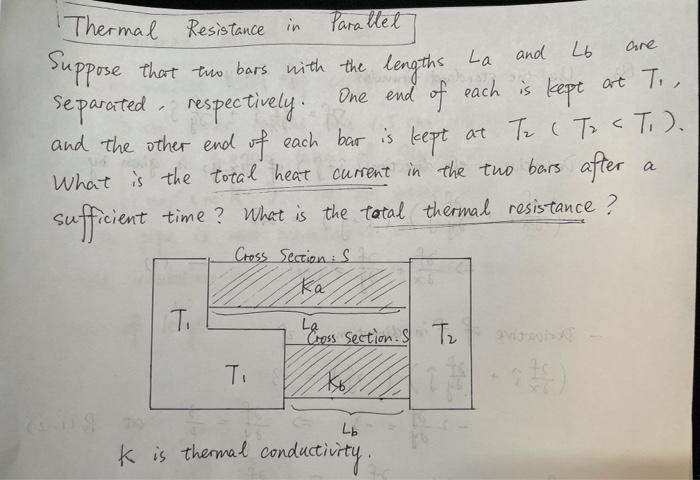 Thermal Resistance in Parallel
Suppose that two bars with the lengths La and Lb are
separated, respectively. One end of each is kept at T1,
and the other end of each bar is kept at T2 (T2 < T1).
What is the total heat current in the two bars after a
sufficient time? What is the total thermal resistance?
Cross Section: S
Ka
La
T1
Cross Section: S
T2
T1
Kb
Lb
K is thermal conductivity.